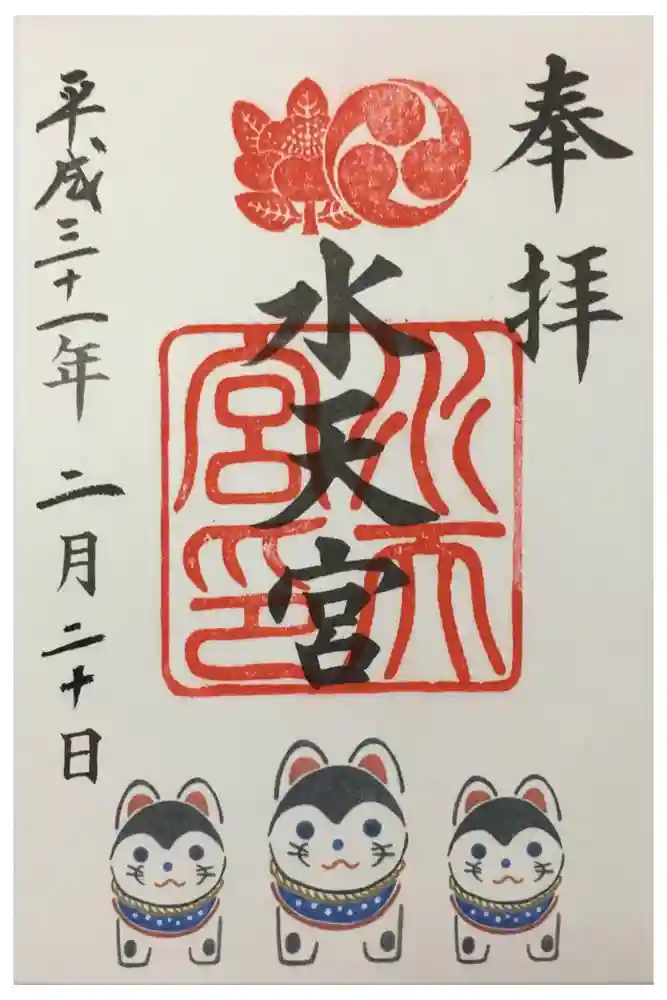 奉拝
水天宮
水天宮印
平成三十一年二月二十日